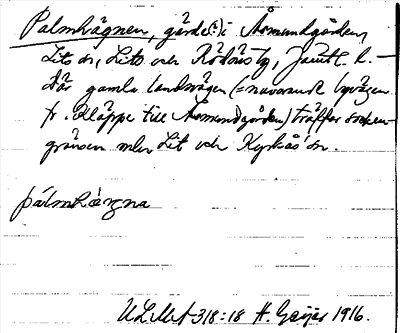 Palmhägnen, gärde(?) i Åsmundgården,
Lits sn, Lits och Rödöns tg, Jämtl. l. —
Där gamla landsvägen (= nuvarande byvägen
fr. Kläppe till Åsmundgården) träffar
gränsen mlm Lit och Kyrkås sn.
pálmhä̀gna
ULMA 318:18 H. Geijer 1916.